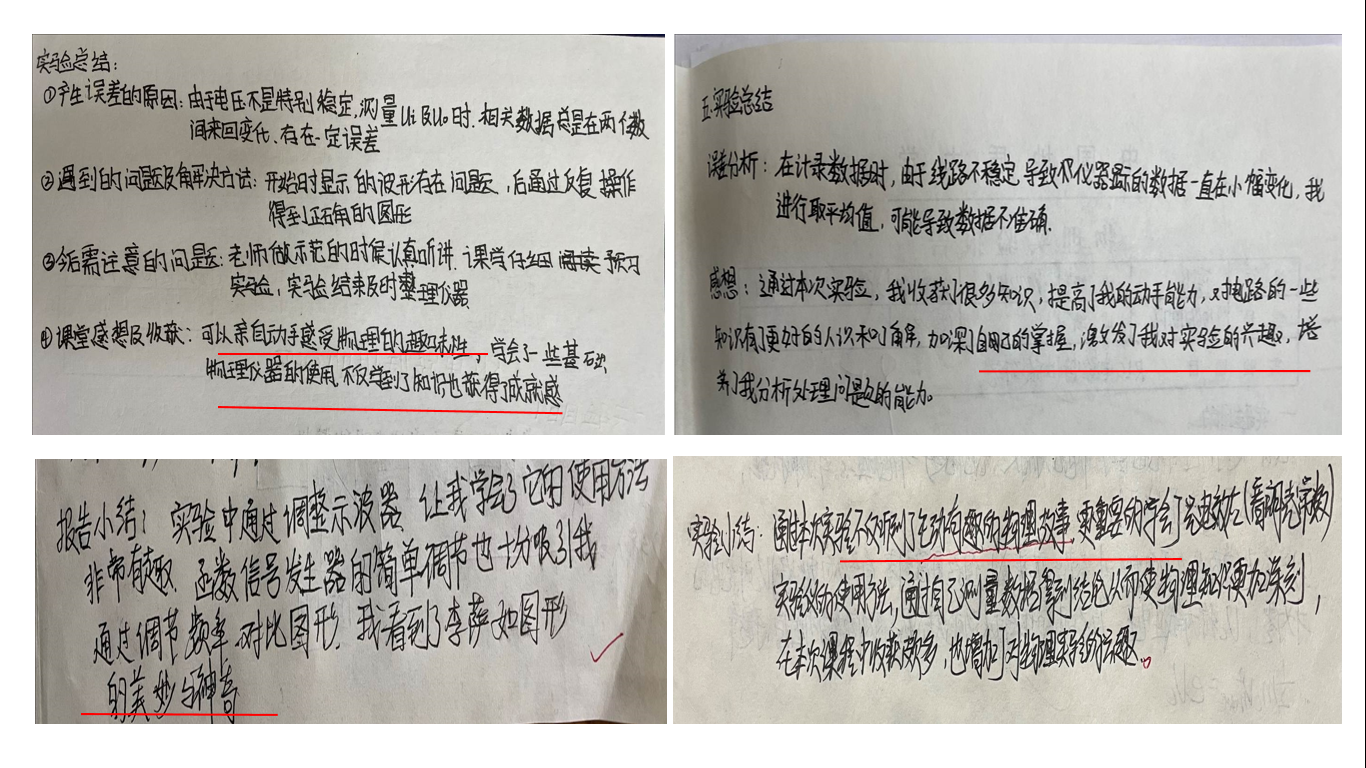 实验总结:
①产生误差的原因:由于电压不是特别稳定,测量Ui及Uo时.相关数据总是在两个数
间来回变化、存在一定误差
②遇到的问题及解决方法:开始时显示的波形存在问题,后通过反复操作
得到正确的图形
③今后需注意的问题:老师做示范的时候认真听讲.课堂仔细阅读预习
实验,实验结束及时整理仪器
④课堂感想及收获:可以亲自动手感受物理的趣味性,学会了一些基础
物理仪器的使用,不仅学到了知识也获得了成就感
五.实验总结
误差分析:在计录数据时,由于线路不稳定,导致仪器显示的数据一直在小幅变化,我
进行取平均值,可能导致数据不准确.
感想:通过本次实验,我收获了很多知识,提高了我的动手能力,对电路的一些
知识有了更好的认识和了解,加深了自己的掌握,激发了我对实验的兴趣,培
养了我分析处理问题的能力。
报告小结:实验中通过调整示波器,让我学会了它的使用方法
非常有趣.函数信号发生器的简单调节也十分吸引我
通过调节频率.对比图形.我看到了李萨如图形
的美妙与神奇
实验小结:通过本次实验不仅听到了生动有趣的物理故事 更重要的学会了
实验仪的使用方法,通过自己测量数据得到结论从而使物理知识更加深刻,
在本次课程中收获颇多,也增加了对物理实验的兴趣。